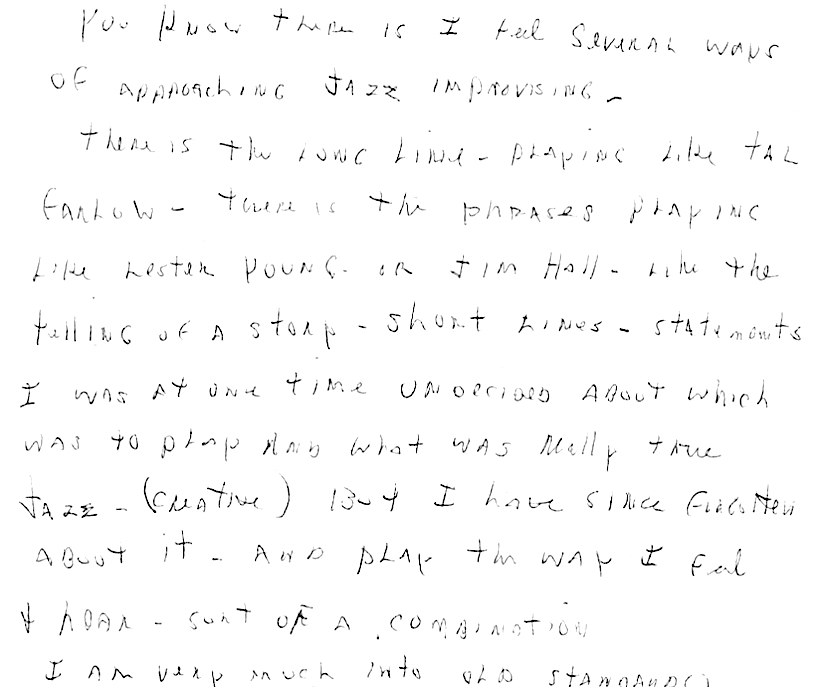 You know there is I feel several ways
of approaching Jazz improvising -
there is the long line - playing like Tal
Farlow - there is the phrases playing
like Lester Young - or Jim Hall - like the
telling of a story - short lines - statements
I was at one time undecided about which
was to play and what was really true
Jazz - (creative) But I have since forgotten
about it - and play the way I feel
& hear - sort of a combination
I am very much into old standards